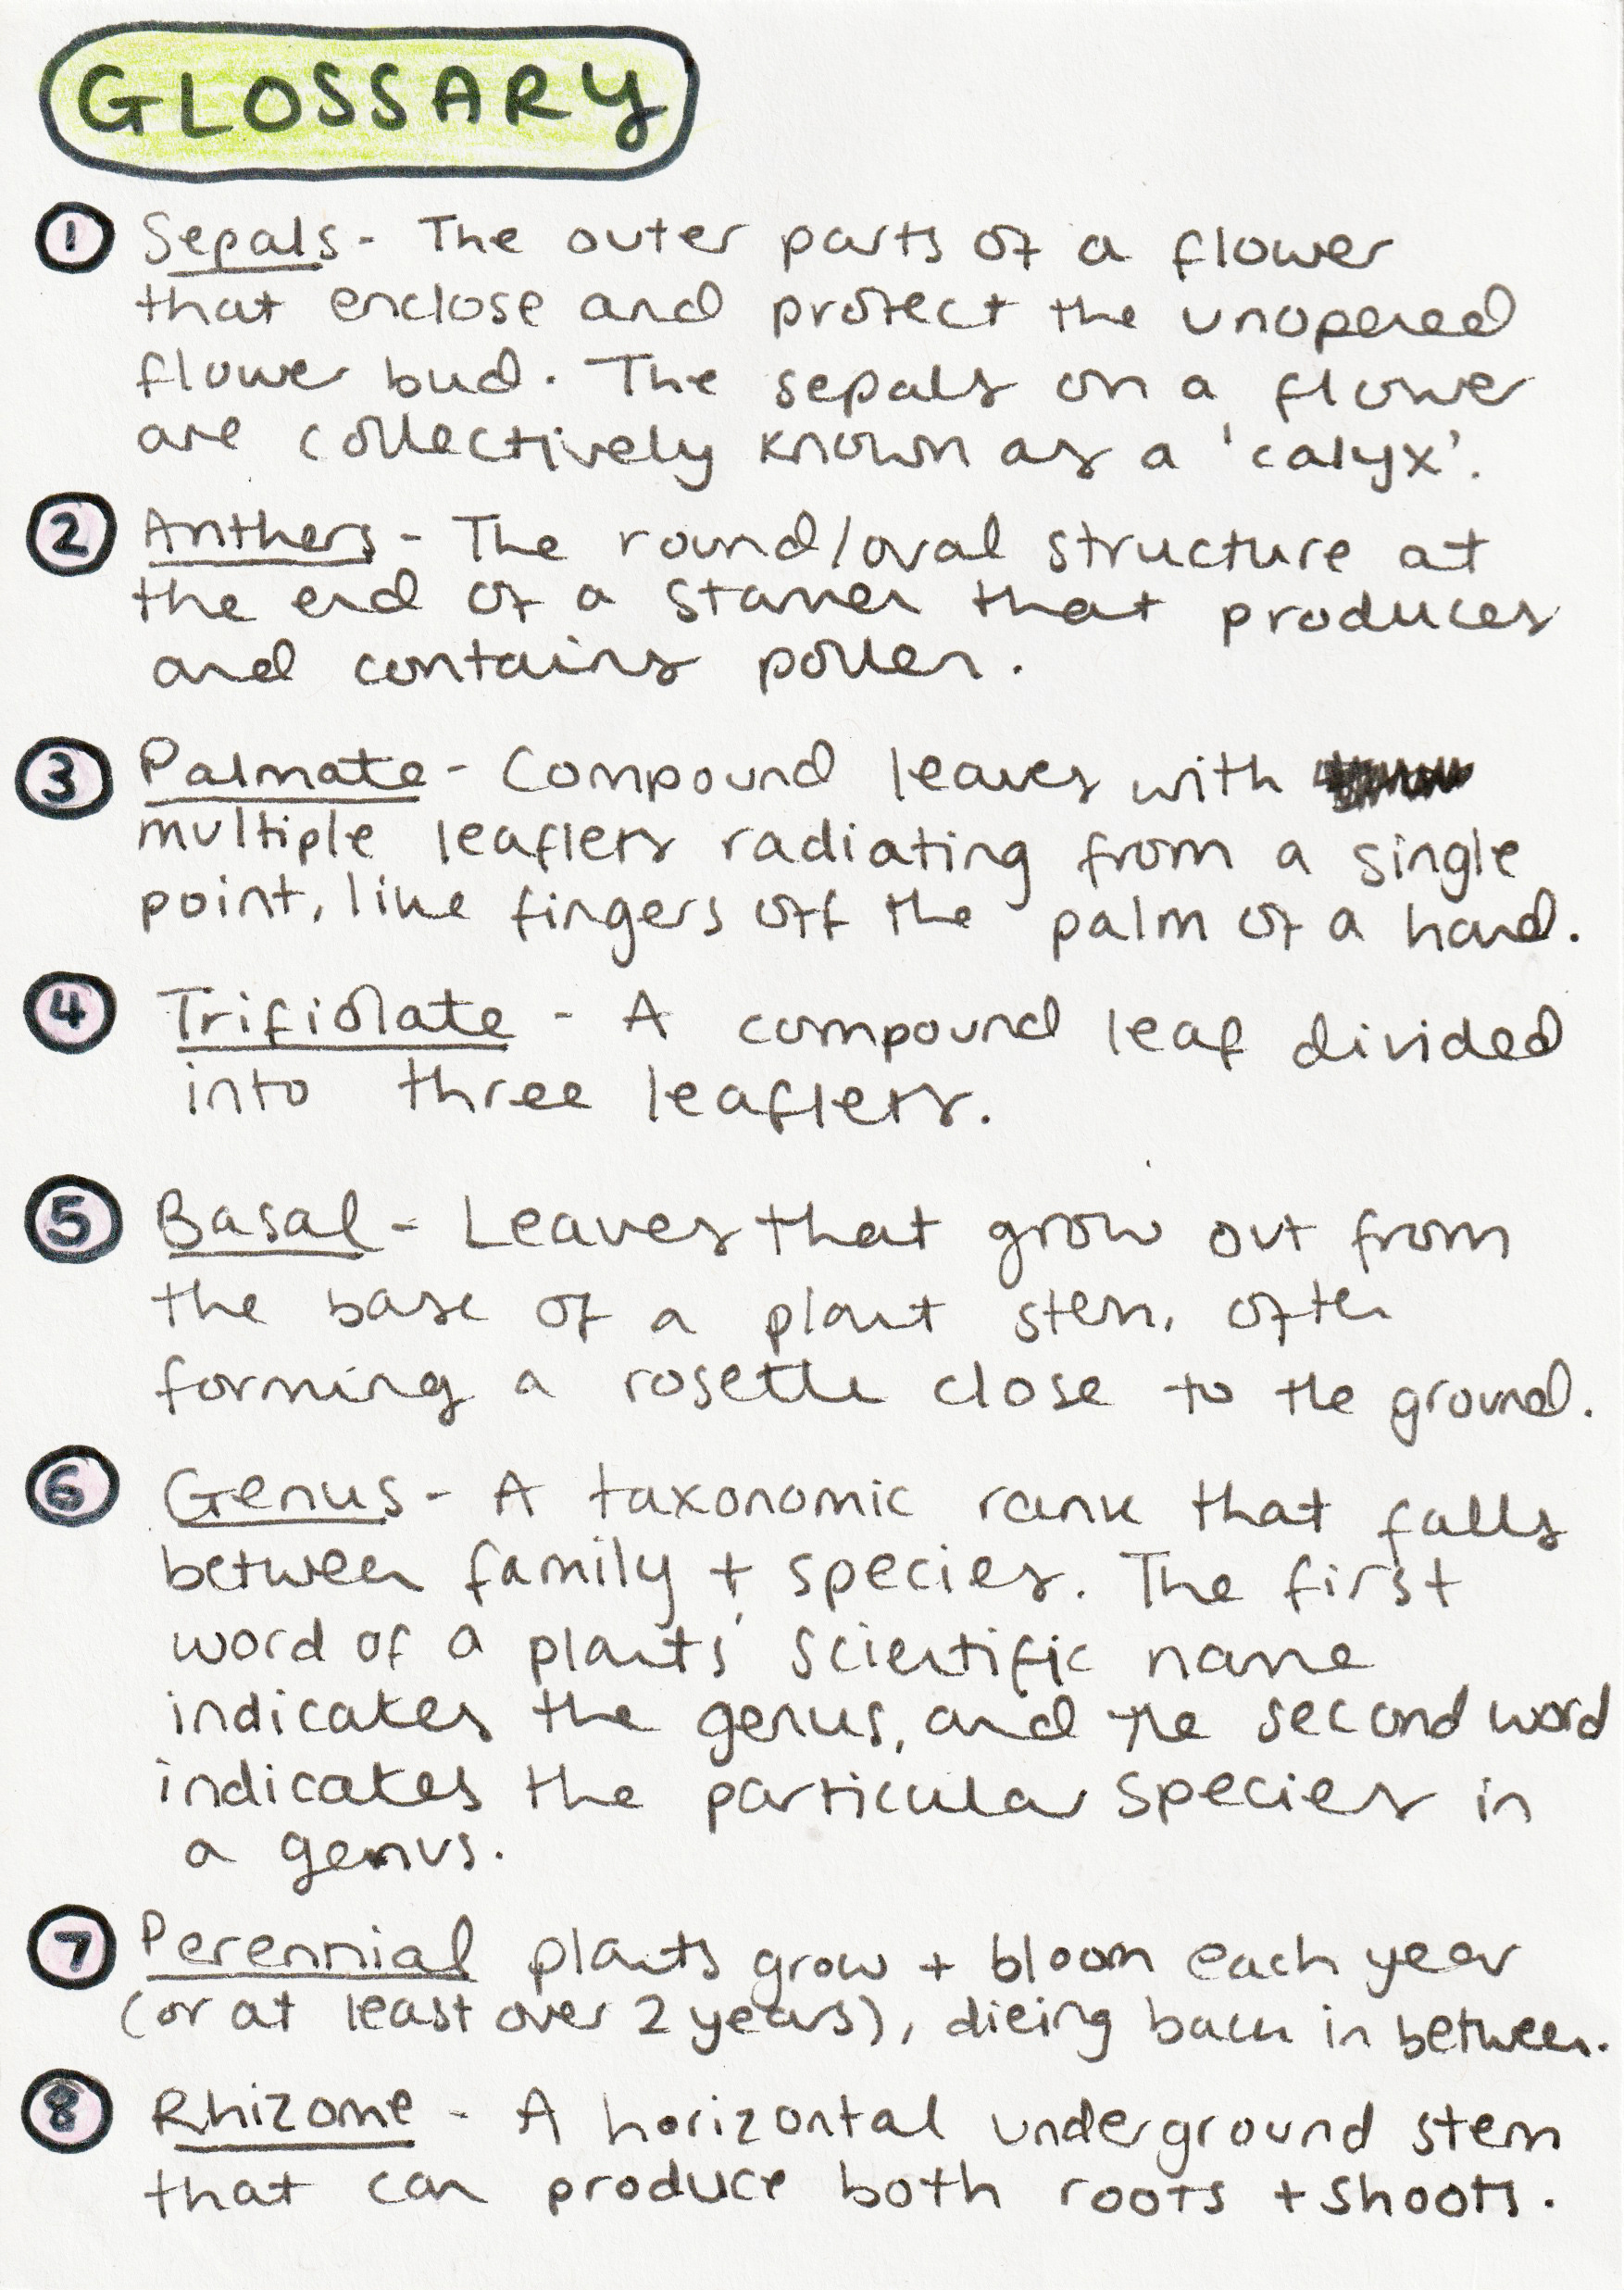 GLOSSARY
1 Sepals - The outer parts of a flower
that enclose and protect the unopened
flower bud. The sepals on a flower
are collectively known as a 'calyx'.
2 Anthers - The round/oval structure at
the end of a stamen that produces
and contains pollen.
3 Palmate - Compound leaves with
multiple leaflets radiating from a single
point, like fingers off the palm of a hand.
4 Trifiolate - A compound leaf divided
into three leaflets.
5 Basal - Leaves that grow out from
the base of a plant stem, often
forming a rosette close to the ground.
6 Genus - A taxonomic rank that falls
between family + species. The first
word of a plants' scientific name
indicates the genus, and the second word
indicates the particular species in
a genus.
7 Perennial plants grow + bloom each year
(or at least over 2 years), dieing back in between.
8 Rhizome - A horizontal underground stem
that can produce both roots + shoots.